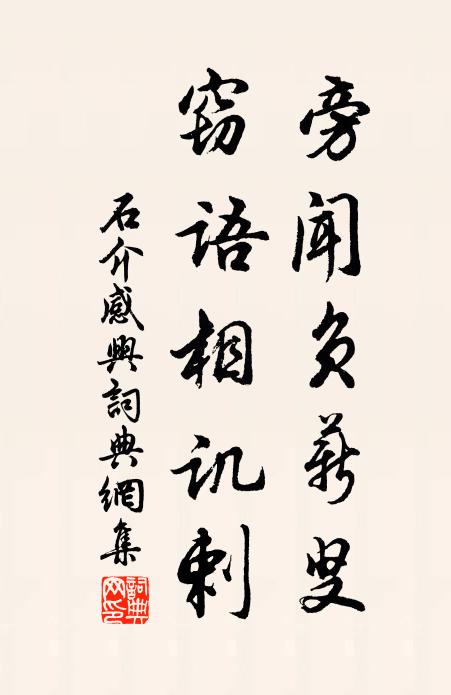 旁闻负薪叟
窃语相讥刺
石介感興詞典網集
詞典網印